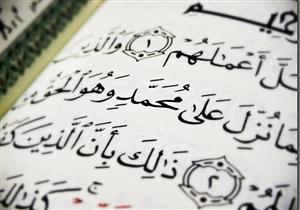 حِيمِ
لَّ أَعْمَٰلَهُمْ ١ وَالَّذِينَ
بِمَا نُزِّلَ عَلَىٰ مُحَمَّدٍ وَهُوَ الْحَقُّ مِن
٢ ذَٰلِكَ بِأَنَّ الَّذِينَ كَفَ
كَذَٰلِكَ